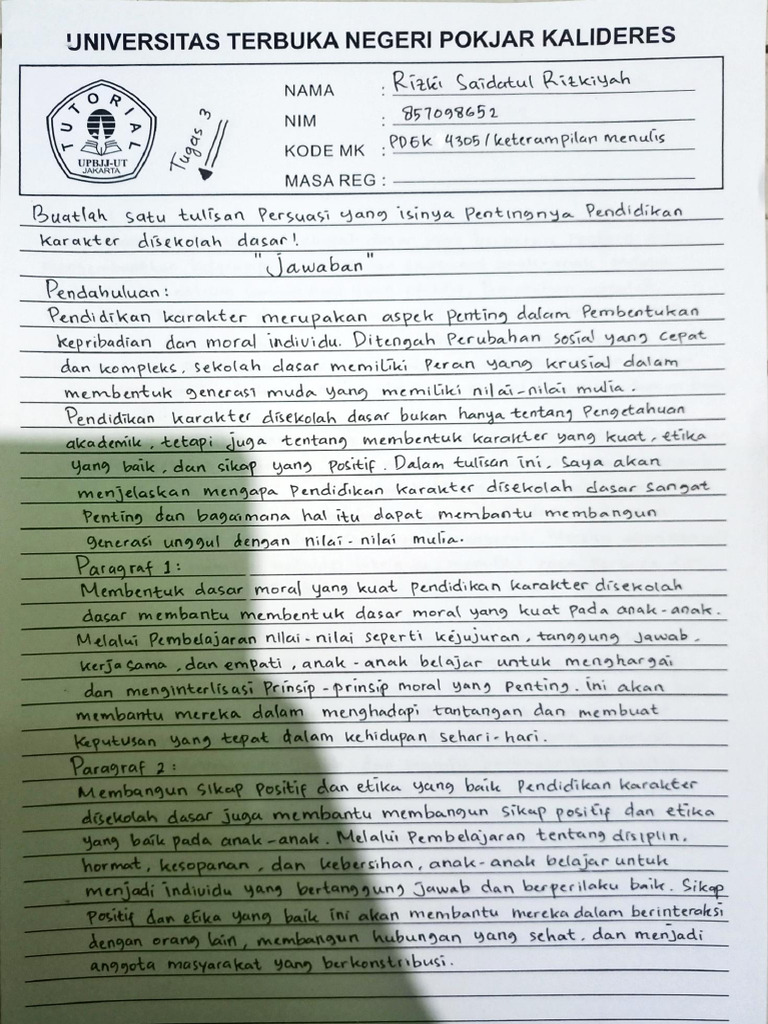 UNIVERSITAS TERBUKA NEGERI POKJAR KALIDERES
TUTORIAL
UPBJJ-UT
JAKARTA
Tugas 3
NAMA : Rizki Saidatul Rizkiyah
NIM : 857098652
KODE MK : PDGK 4305/keterampilan menulis
MASA REG :
Buatlah satu tulisan Persuasi yang isinya Pentingnya Pendidikan
karakter disekolah dasar!
"Jawaban"
Pendahuluan:
Pendidikan karakter merupakan aspek penting dalam Pembentukan
kepribadian dan moral individu. Ditengah Perubahan sosial yang cepat
dan kompleks, sekolah dasar memiliki Peran yang krusial dalam
membentuk generasi muda yang memiliki nilai-nilai mulia.
Pendidikan karakter disekolah dasar bukan hanya tentang Pengetahuan
akademik, tetapi juga tentang membentuk karakter yang kuat, etika
yang baik, dan sikap yang positif. Dalam tulisan ini, saya akan
menjelaskan mengapa Pendidikan karakter disekolah dasar sangat
Penting dan bagaimana hal itu dapat membantu membangun
generasi unggul dengan nilai-nilai mulia.
Paragraf 1:
Membentuk dasar moral yang kuat pendidikan karakter disekolah
dasar membantu membentuk dasar moral yang kuat pada anak-anak.
Melalui Pembelajaran nilai-nilai seperti kejujuran, tanggung jawab,
kerja sama, dan empati, anak-anak belajar untuk menghargai
dan menginterlisasi Prinsip-prinsip moral yang Penting. ini akan
membantu mereka dalam menghadapi tantangan dan membuat
keputusan yang tepat dalam kehidupan sehari-hari.
Paragraf 2:
Membangun sikap Positif dan etika yang baik Pendidikan karakter
disekolah dasar juga membantu membangun sikap positif dan etika
yang baik pada anak-anak. Melalui Pembelajaran tentang disiplin,
hormat, kesopanan, dan kebersihan, anak-anak belajar untuk
menjadi individu yang bertanggung jawab dan berperilaku baik. Sikap
Positif dan etika yang baik ini akan membantu mereka dalam berinteraksi
dengan orang lain, membangun hubungan yang sehat, dan menjadi
anggota masyarakat yang berkonstribusi.